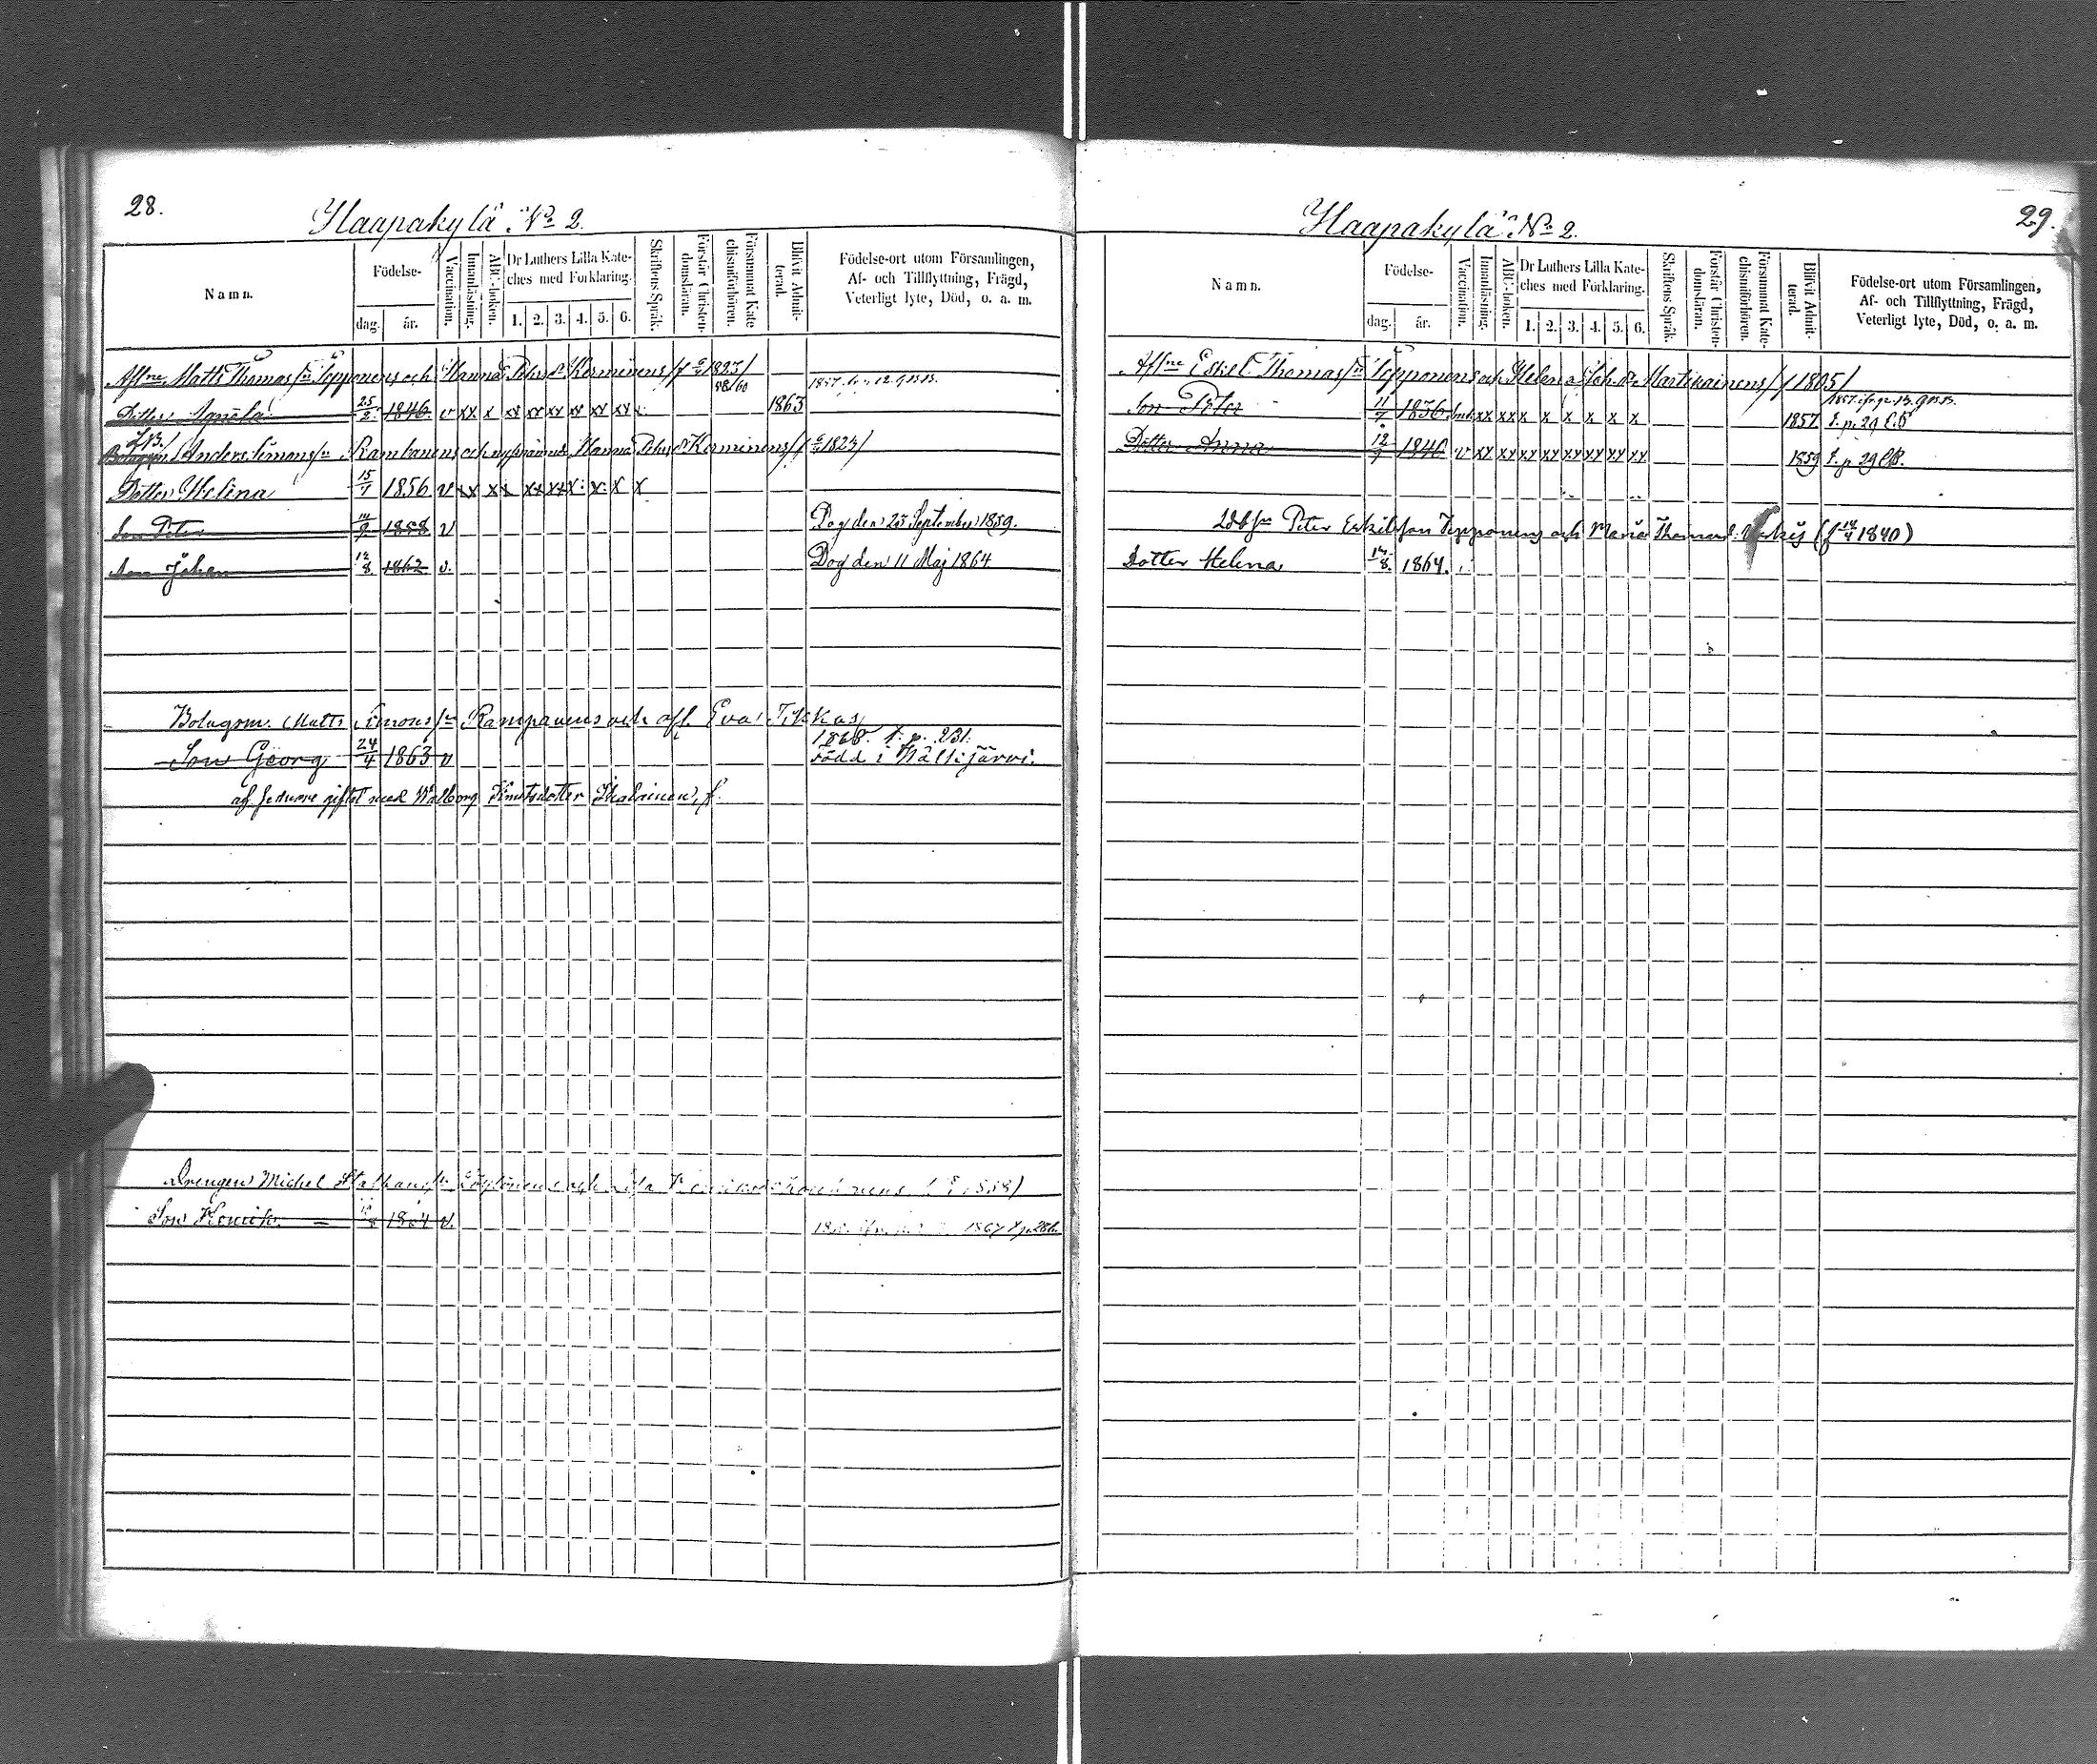 28.
Haapakylä No 2.
Namn.
Födelse-
dag.
år.
Vaccination.
Innanläsning.
ABC-boken.
Dr Luthers Lilla Kate-
ches med Förklaring.
1. 2. 3. 4. 5. 6.
Skriftens Språk.
Förstår Christen-
domsläran.
Försummat Kate-
chismiförhören.
Blifvit Admit-
terad.
Födelse-ort utom Församlingen,
Af- och Tillflyttning, Frägd,
Veterligt lyte, Död, o. a. m.
Aflne Matts Thomass:n Tepponens och Hanna Pehrsd:r Korminens 1823/
Dotter Agneta 25/2 1846 v xx x xx xx xx xx xx xx x 1863
Anders Simons:n Rambanens och Hanna Pehrs d:r Korminens 1823/
Dotter Helena 15/7 1856 v xx xx xx xx x x x x
Son Peter 1858 v Dog den 25 September 1859.
Son Johan 1862 v. Dog den 11 Maj 1864
Bolagsm. Matts Simons:n Rampanens och afl. Eva Tikkas
1868. t. p. 231.
Son Georg 24/4 1863 v född i Wälkijärvi.
giftt med Walborg Knutsdotter Ikalainen, f.
Drengen Michel
Son Henrik 1864 v. 1867 p. 286.
29.
Haapakylä No 2.
Namn.
Födelse-
dag.
år.
Vaccination.
Innanläsning.
ABC-boken.
Dr Luthers Lilla Kate-
ches med Förklaring.
1. 2. 3. 4. 5. 6.
Skriftens Språk.
Förstår Christen-
domsläran.
Försummat Kate-
chismiförhören.
Blifvit Admit-
terad.
Födelse-ort utom Församlingen,
Af- och Tillflyttning, Frägd,
Veterligt lyte, Död, o. a. m.
Aflne Eskel Thomass:n Tepponens och Helena Joh. d:r Martikainens / 1805/
Son Peter 11/7 1836 xx xx x x x x x x 1857
Dotter Anna 12/7 1840 v xx xx xx xx xx xx xx xx 1859
Peter Eskilsson Tepponens och Maria Thomasd: (f 14/4 1840)
Dotter Helena 14/8. 1864.